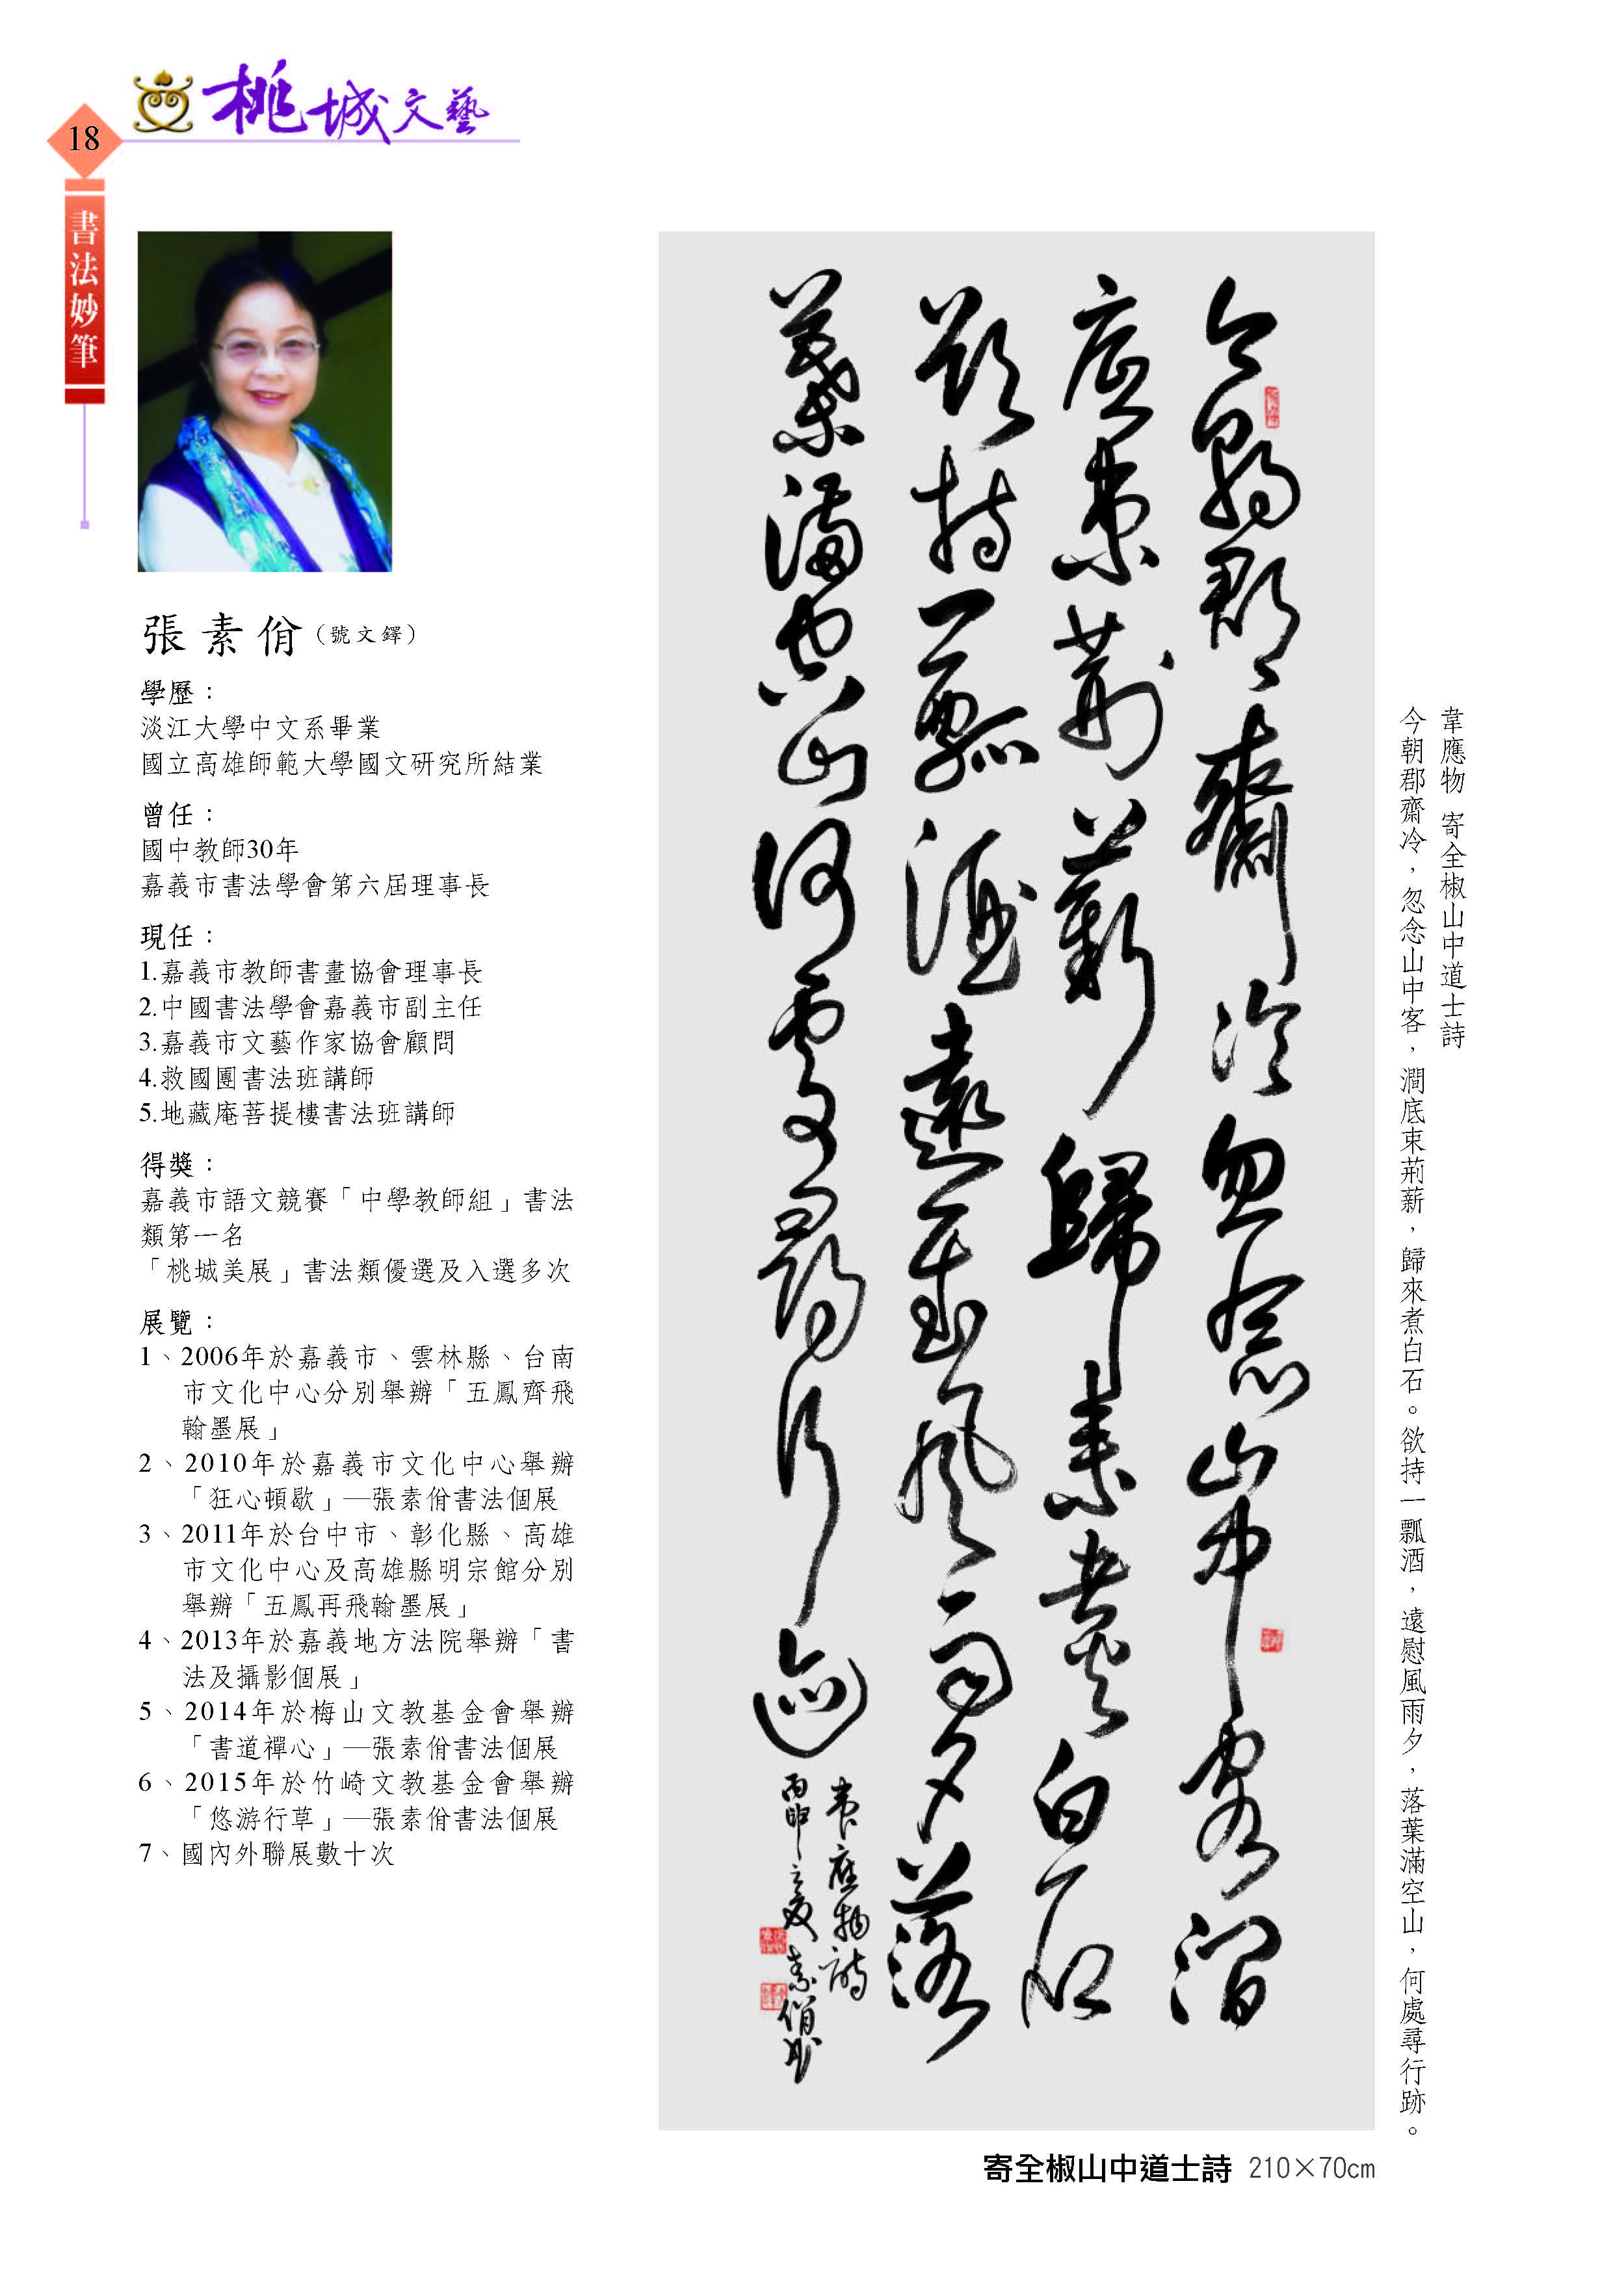 桃城文藝
18
書法妙筆
張素佾（號文鐸）
學歷：
淡江大學中文系畢業
國立高雄師範大學國文研究所結業
曾任：
國中教師30年
嘉義市書法學會第六屆理事長
現任：
1.嘉義市教師書畫協會理事長
2.中國書法學會嘉義市副主任
3.嘉義市文藝作家協會顧問
4.救國團書法班講師
5.地藏庵菩提樓書法班講師
得獎：
嘉義市語文競賽「中學教師組」書法
類第一名
「桃城美展」書法類優選及入選多次
展覽：
1、2006年於嘉義市、雲林縣、台南
市文化中心分別舉辦「五鳳齊飛
翰墨展」
2、2010年於嘉義市文化中心舉辦
「狂心頓歇」—張素佾書法個展
3、2011年於台中市、彰化縣、高雄
市文化中心及高雄縣明宗館分別
舉辦「五鳳再飛翰墨展」
4、2013年於嘉義地方法院舉辦「書
法及攝影個展」
5、2014年於梅山文教基金會舉辦
「書道禪心」—張素佾書法個展
6、2015年於竹崎文教基金會舉辦
「悠游行草」—張素佾書法個展
7、國內外聯展數十次
韋應物 寄全椒山中道士詩
今朝郡齋冷，忽念山中客，澗底束荊薪，歸來煮白石。欲持一瓢酒，遠慰風雨夕，落葉滿空山，何處尋行跡。
今朝郡齋冷忽念山中客澗
底束荊薪歸來煮白石
欲持一瓢酒遠慰風雨夕落
葉滿空山何處尋行跡
韋應物詩
丙申之夏素佾書
寄全椒山中道士詩 210×70cm